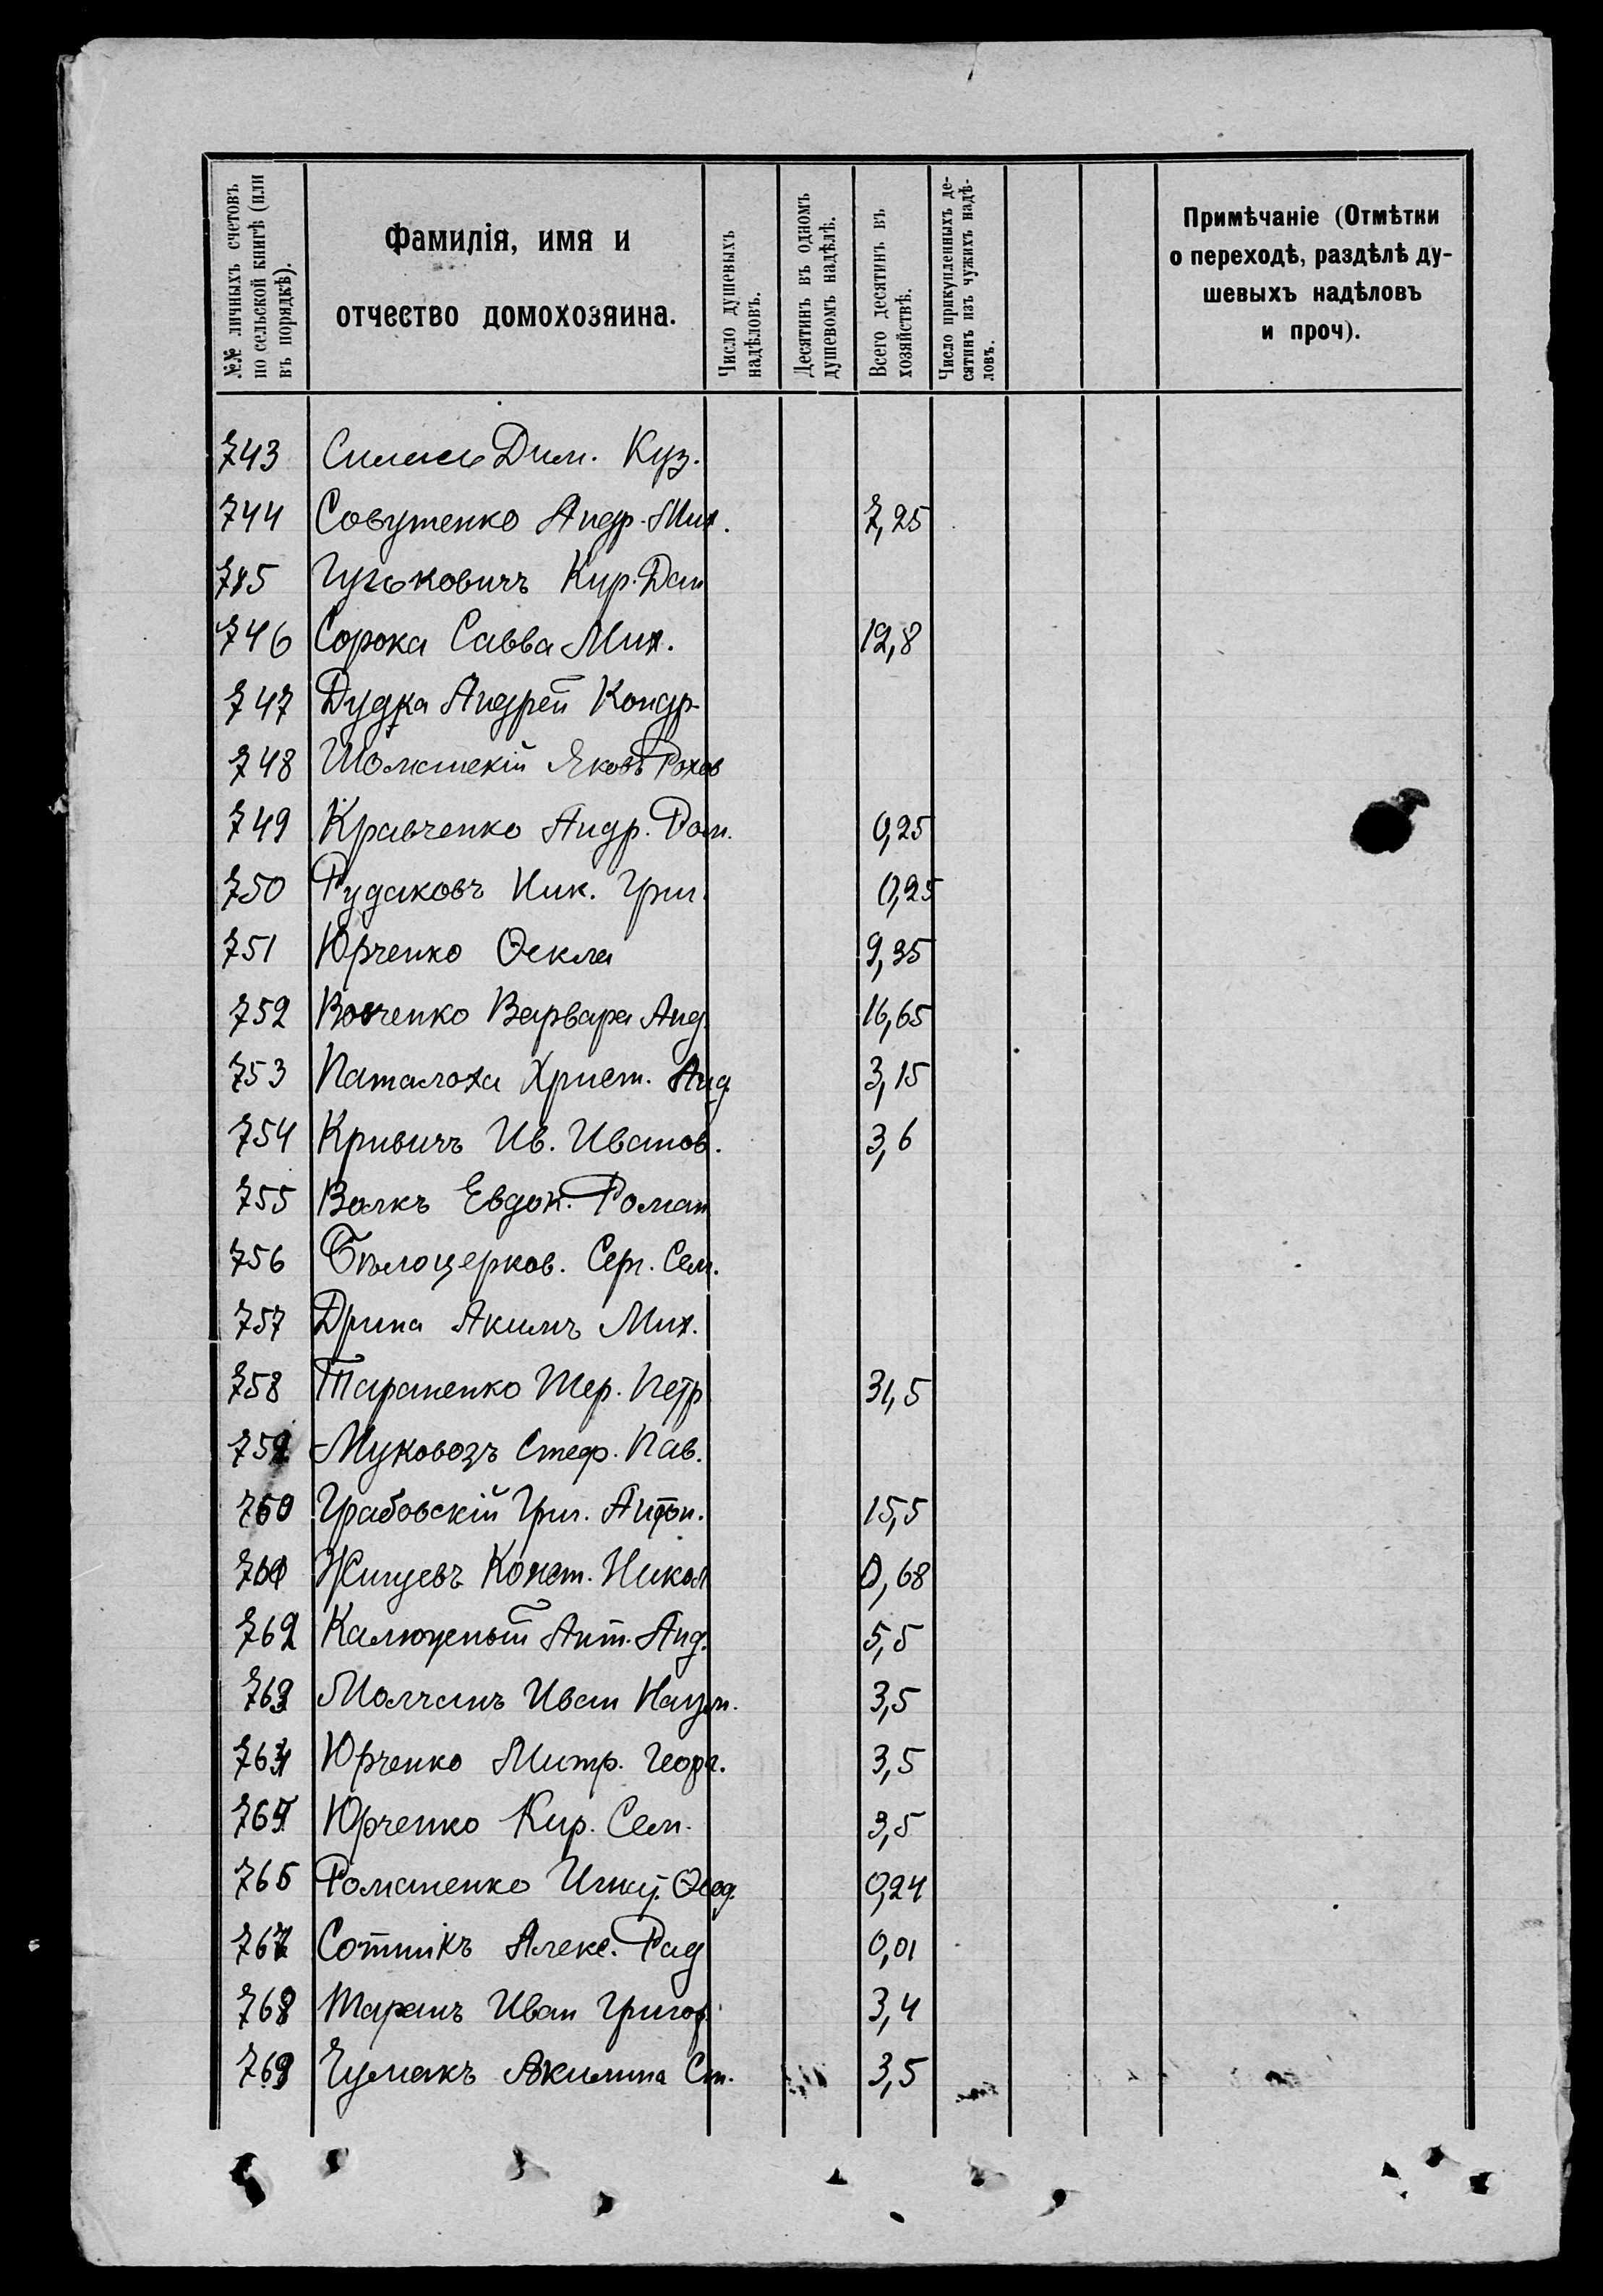 №№ личныхъ счетовъ по сельской книгѣ (или въ порядкѣ).
Фамилія, имя и отчество домохозяина.
Число душевыхъ надѣловъ.
Десятинъ въ одномъ душевомъ надѣлѣ.
Всего десятинъ въ хозяйствѣ.
Число прикупленныхъ десятинъ изъ чужихъ надѣловъ.
Примѣчаніе (Отмѣтки
о переходѣ, раздѣлѣ ду-
шевыхъ надѣловъ
и проч).
743 Дим. Куз.
744 Совутенко Андр. Мих. 7,25
745 Гуськовичъ Кир. Дан
746 Сорока Савва Мих. 12,8
747 Дудка Андрей Кондр
748 Яковъ
749 Кравченко Андр. Ром. 0,25
750 Рудаковъ Ник. Григ. 0,25
751 Юрченко Ѳекла 9,35
752 Вовченко Варвара Анд. 16,65
753 Паталоха Христ. Анд. 3,15
754 Кривичъ Ив. Иванов. 3,6
755 Волкъ Евдок. Роман
756 Бѣлоцерков. Серг. Сем.
757 Дрига Акимъ Мих.
758 Тараненко Тер. Петр 31,5
759 Муковозъ Стеф. Пав.
760 Грабовскій Григ. Антон. 15,5
761 Конст. Никол 0,68
762 Калюжный Ант. Анд. 5,5
763 Молчанъ Иван Наум. 3,5
764 Юрченко Митр. Георг. 3,5
765 Юрченко Кир. Сем. 3,5
766 Романенко Игнат. Ѳеод. 0,24
767 Сотникъ Алекс. Рад 0,01
768 Таранъ Иван Григор. 3,4
769 Чумакъ Акилина Ст. 3,5